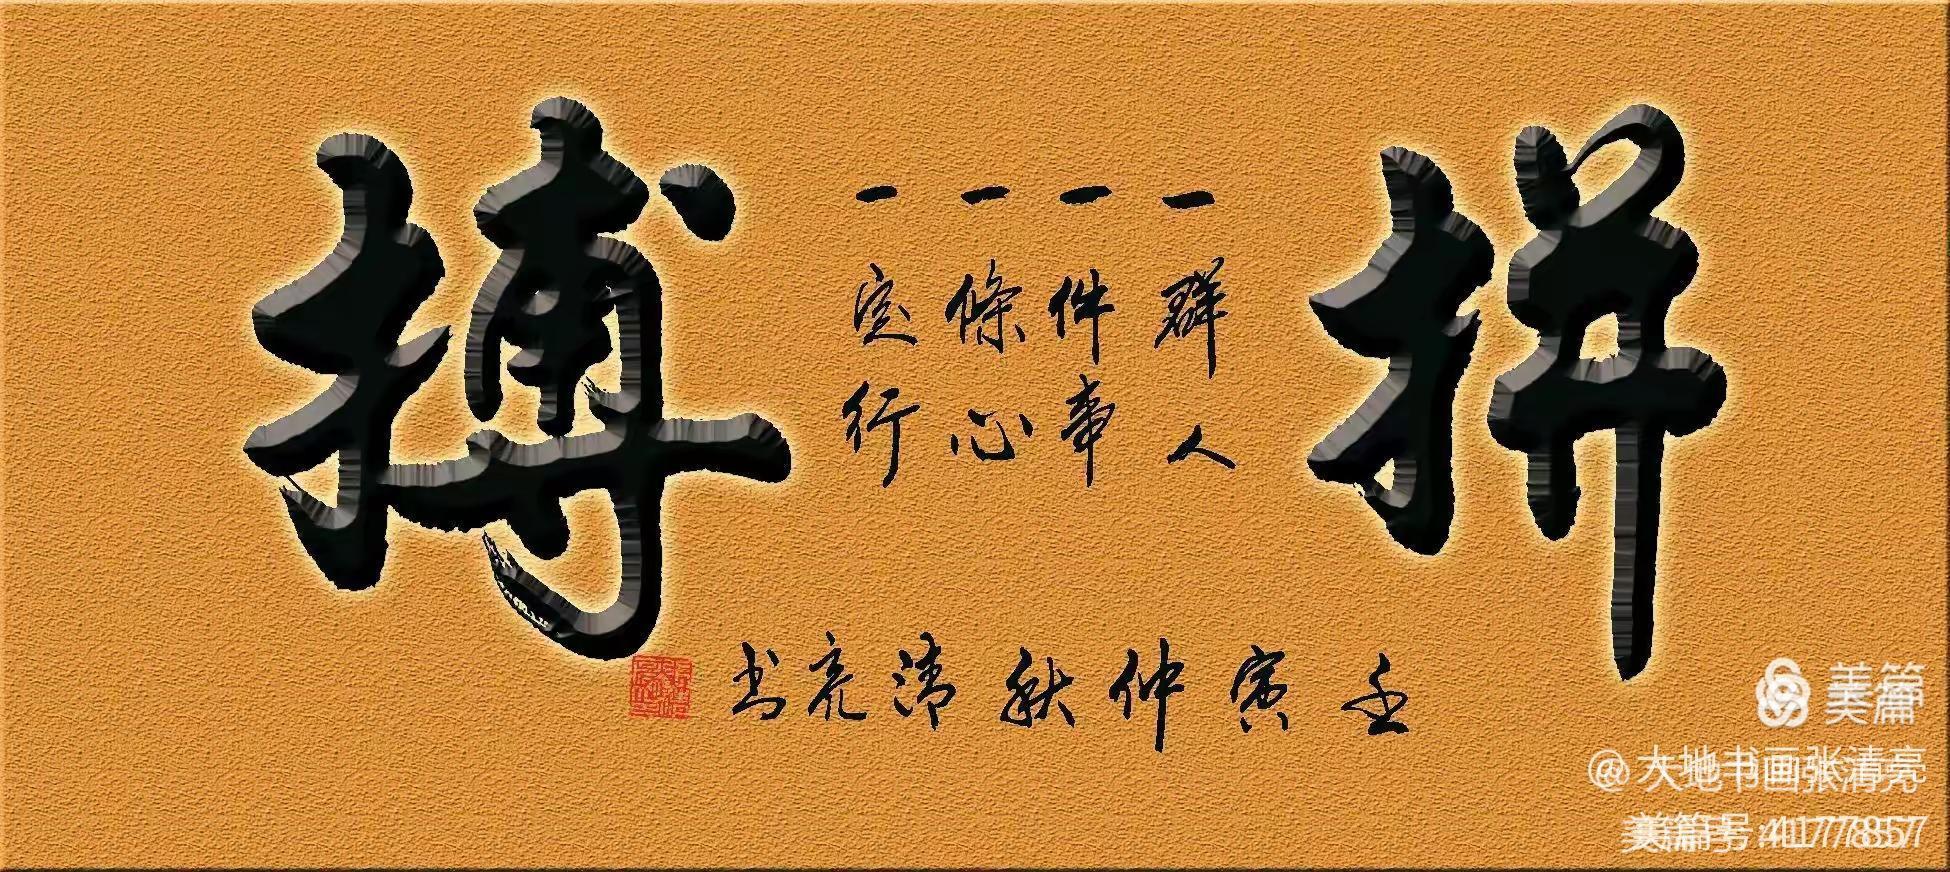 拼搏
一群人
一件事
一條心
一定行
壬寅仲秋清亮书
美篇
@大地书画张清亮
美篇号:41777857